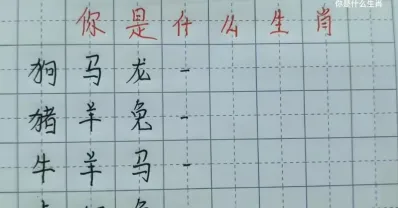 你是什么生肖
你是什么生肖
狗马龙-
猪羊兔-
牛羊马-